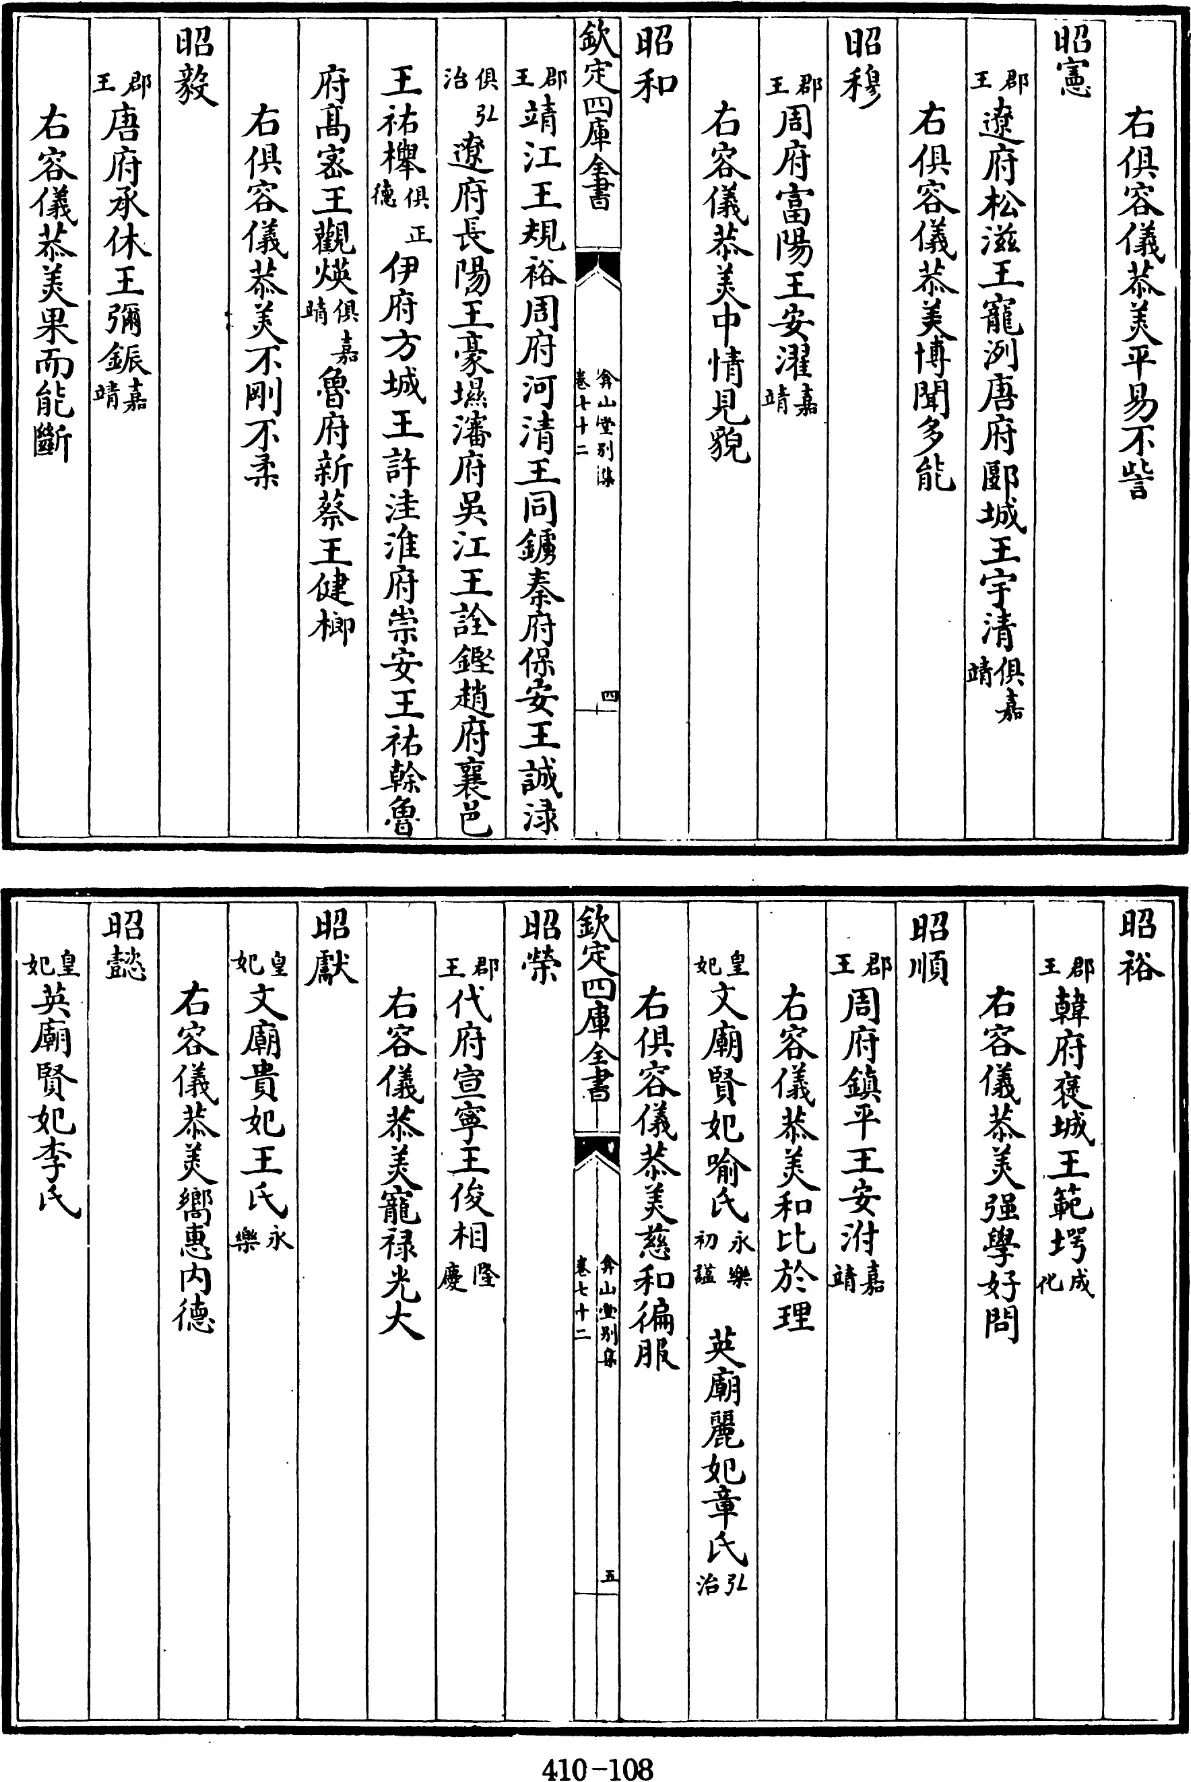 右俱容儀恭美平易不訾
昭憲
郡王遼府松滋王寵洌唐府郾城王宇清俱嘉靖
右俱容儀恭美博聞多能
昭穆
郡王周府富陽王安㶅嘉靖
右容儀恭美中情見貌
昭和
欽定四庫全書
弇山堂别集
卷七十二
四
郡王靖江王規裕周府河清王同鐪秦府保安王誠淥
俱弘治遼府長陽王豪壏瀋府吳江王詮鏗趙府襄邑
王祐樺俱正德伊府方城王許洼淮府崇安王祐榦魯
府髙宻王觀熯俱嘉靖魯府新蔡王健榔
右俱容儀恭美不剛不柔
昭毅
郡王唐府承休王彌鋠嘉靖
右容儀恭美果而能斷
昭裕
郡王韓府褒城王範堮成化
右容儀恭美强學好問
昭順
郡王周府鎮平王安泭嘉靖
右容儀恭美和比於理
皇妃文廟賢妃喻氏永樂初諡 英廟麗妃章氏弘治
右俱容儀恭美慈和徧服
欽定四庫全書
弇山堂别集
卷七十二
五
昭榮
郡王代府宣寧王俊相隆慶
右容儀恭美寵禄光大
昭獻
皇妃文廟貴妃王氏永樂
右容儀恭美嚮惠内德
昭懿
皇妃英廟賢妃李氏
410-108